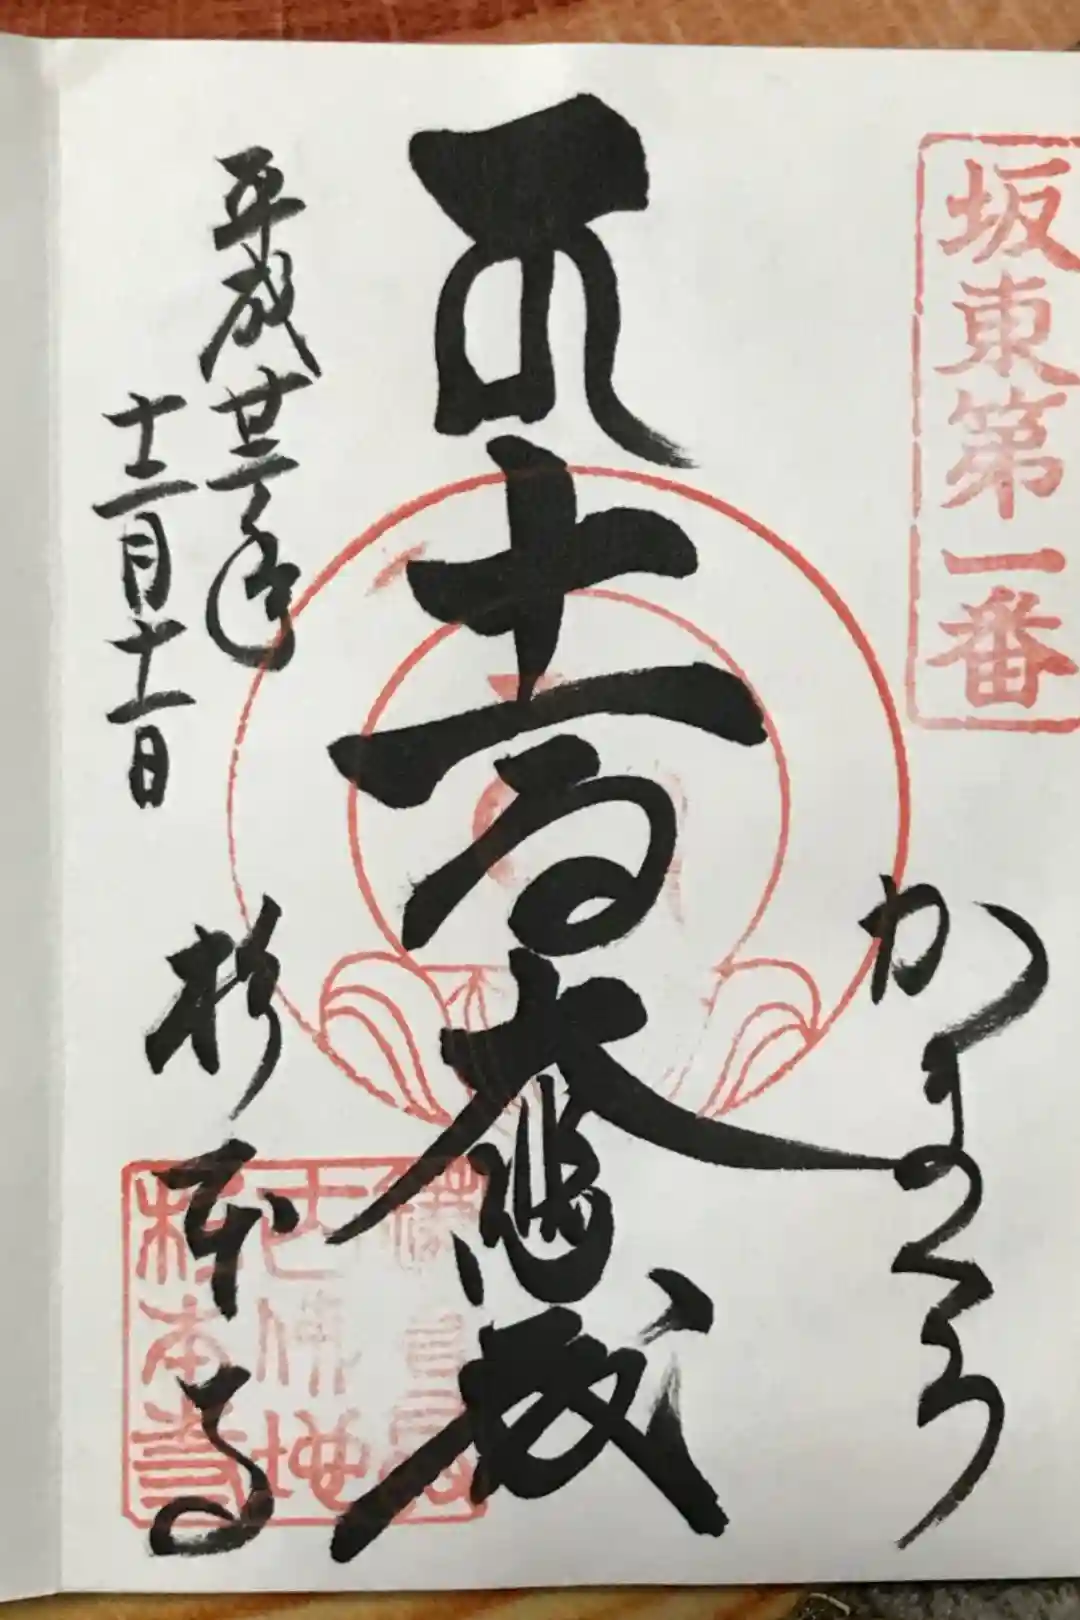 坂東第一番
かまくら
十一面大悲殿
平成廿三年
十二月十一日
杉本寺
古佛地
杉本寺